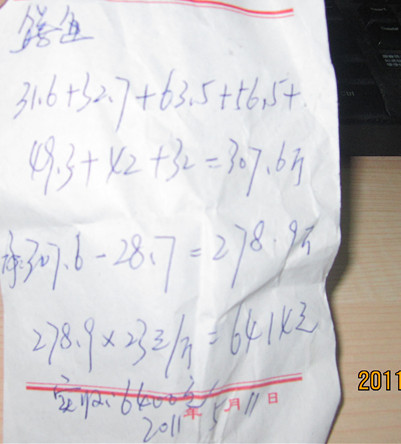 31.6+32.7+63.5+56.5+
49.3+42+32=307.6斤
净:307.6-28.7=278.9斤
278.9×23元/斤=6414元
实收:6400元
2011年5月11日
2011